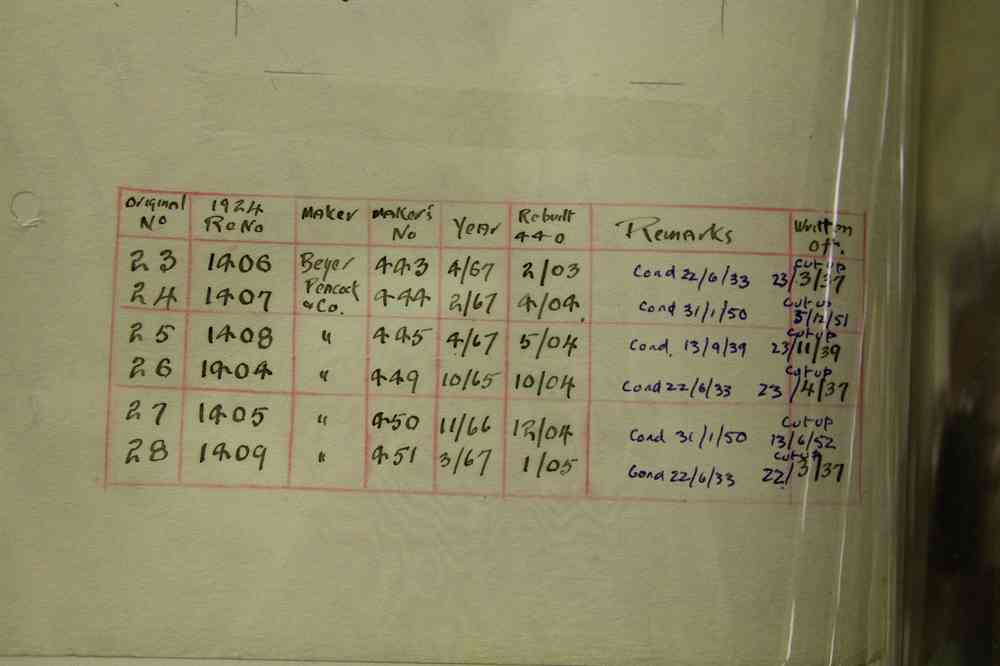 Original No 1924 Re No Maker Maker's No Year Rebuilt 440 Remarks Written Off.
23 1406 Beyer 443 4/67 2/03 Cond 22/6/33 cut up 23/3/37
24 1407 Peacock & Co. 444 2/67 4/04 Cond 31/1/50 cut up 5/12/51
25 1408 " 445 4/67 5/04 Cond. 13/9/39 cut up 23/11/39
26 1404 " 449 10/65 10/04 Cond 22/6/33 cut up 23/4/37
27 1405 " 450 11/66 12/04 Cond 31/1/50 cut up 13/6/52
28 1409 " 451 3/67 1/05 Cond 22/6/33 cut up 22/3/37